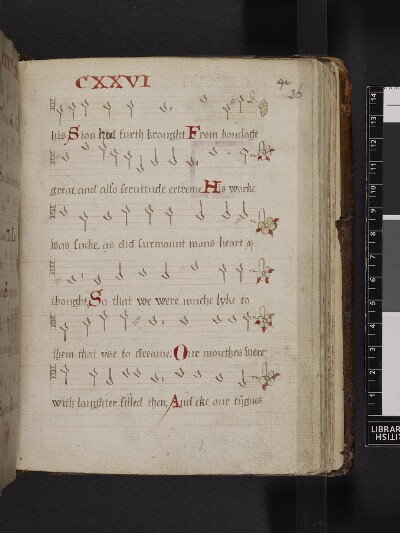 CXXVI
36
his Sion had furth brought From bondage
great, and also servitude extreme, His worke
was suche, as did surmount mans heart &
thought, So that we were muche lyke to
them that vse to dreame. Our mouthes were
with laughter filled then, And eke our tūgues
14
13
12
11
10
9
8
7
6
5
4
3
2
1
LIBRAR